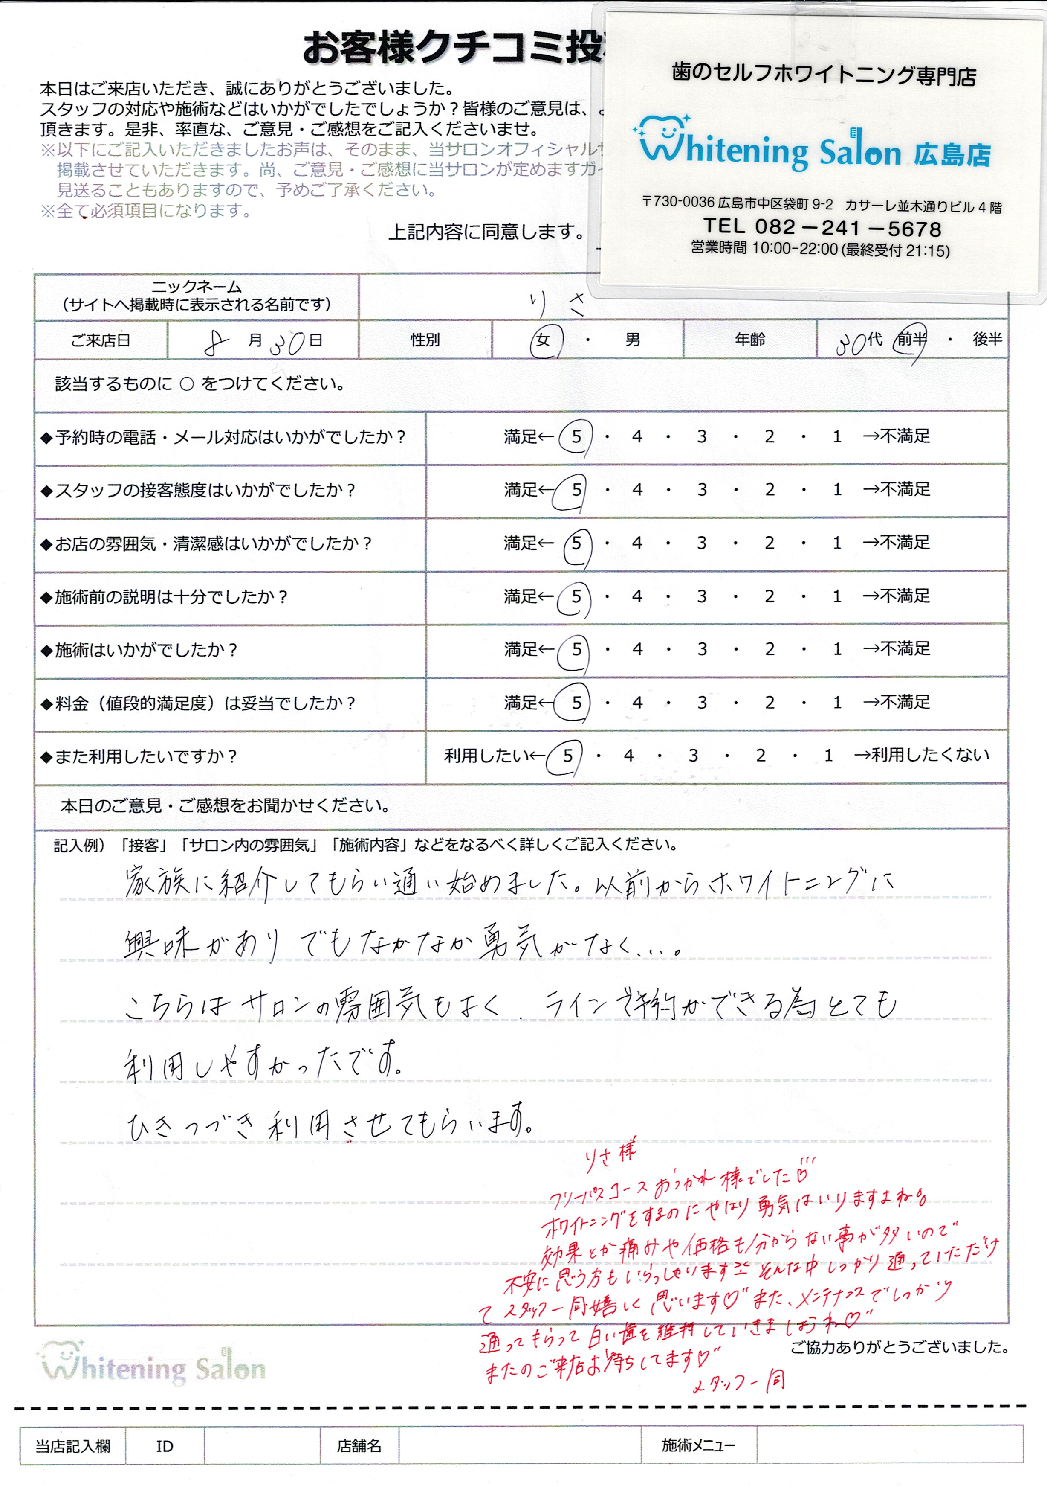 お客様クチコミ投
本日はご来店いただき、誠にありがとうございました。
スタッフの対応や施術などはいかがでしたでしょうか？皆様のご意見は、
頂きます。是非、率直な、ご意見・ご感想をご記入くださいませ。
※以下にご記入いただきましたお声は、そのまま、当サロンオフィシャル
掲載させていただきます。尚、ご意見・ご感想に当サロンが定めますガイ
見送ることもありますので、予めご了承ください。
※全て必須項目になります。
上記内容に同意します。
歯のセルフホワイトニング専門店
Whitening Salon 広島店
〒730-0036 広島市中区袋町 9-2 カサーレ並木通りビル 4 階
TEL 082－241－5678
営業時間 10:00-22:00 (最終受付 21:15)
ニックネーム
（サイトへ掲載時に表示される名前です）
りさ
ご来店日 8 月 30 日 性別 女 ・ 男 年齢 30代 前半 ・ 後半
該当するものに ○ をつけてください。
◆予約時の電話・メール対応はいかがでしたか？ 満足← 5 ・ 4 ・ 3 ・ 2 ・ 1 →不満足
◆スタッフの接客態度はいかがでしたか？ 満足← 5 ・ 4 ・ 3 ・ 2 ・ 1 →不満足
◆お店の雰囲気・清潔感はいかがでしたか？ 満足← 5 ・ 4 ・ 3 ・ 2 ・ 1 →不満足
◆施術前の説明は十分でしたか？ 満足← 5 ・ 4 ・ 3 ・ 2 ・ 1 →不満足
◆施術はいかがでしたか？ 満足← 5 ・ 4 ・ 3 ・ 2 ・ 1 →不満足
◆料金（値段的満足度）は妥当でしたか？ 満足← 5 ・ 4 ・ 3 ・ 2 ・ 1 →不満足
◆また利用したいですか？ 利用したい← 5 ・ 4 ・ 3 ・ 2 ・ 1 →利用したくない
本日のご意見・ご感想をお聞かせください。
記入例）「接客」「サロン内の雰囲気」「施術内容」などをなるべく詳しくご記入ください。
家族に紹介してもらい通い始めました。以前からホワイトニングに
興味がありでもなかなか勇気がなく…。
こちらはサロンの雰囲気もよく、ラインで予約ができる為とても
利用しやすかったです。
ひきつづき利用させてもらいます。
りさ様
フリーパスコースおつかれ様でした♡
ホワイトニングをするのにやはり勇気はいりますよね。
効果とか痛みや価格も分からない事が多いので
不安に思う方もいらっしゃいます そんな中しっかり通っていただけ
てスタッフ一同嬉しく思います♡ また、メンテナンスでしっかり
通ってもらって白い歯を維持していきましょうね♡
またのご来店お待ちしてます♡
スタッフ一同
ご協力ありがとうございました。
Whitening Salon
当店記入欄 ID 店舗名 施術メニュー